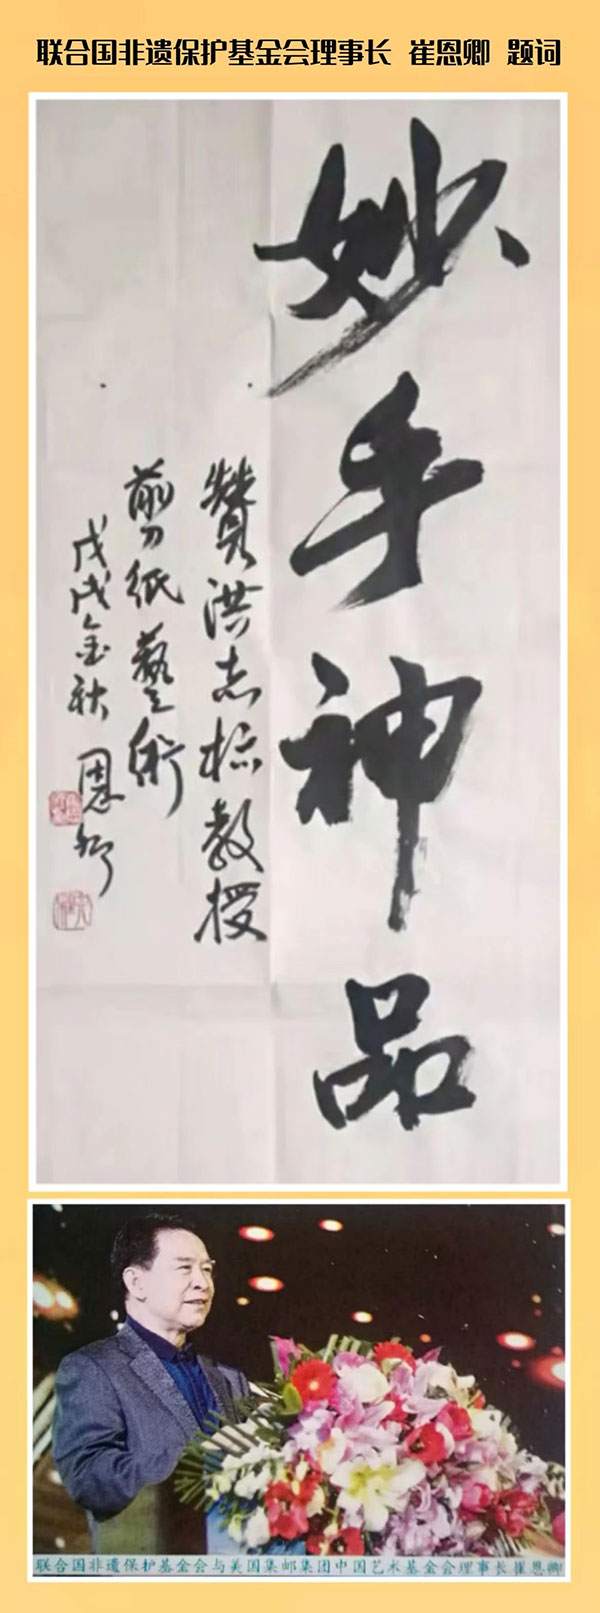 联合国非遗保护基金会理事长 崔恩卿 题词
妙手神品
赞洪志标教授
剪纸藝術
戊戌金秋 恩卿
联合国非遗保护基金会与美国集邮集团中国艺术基金会理事长崔恩卿